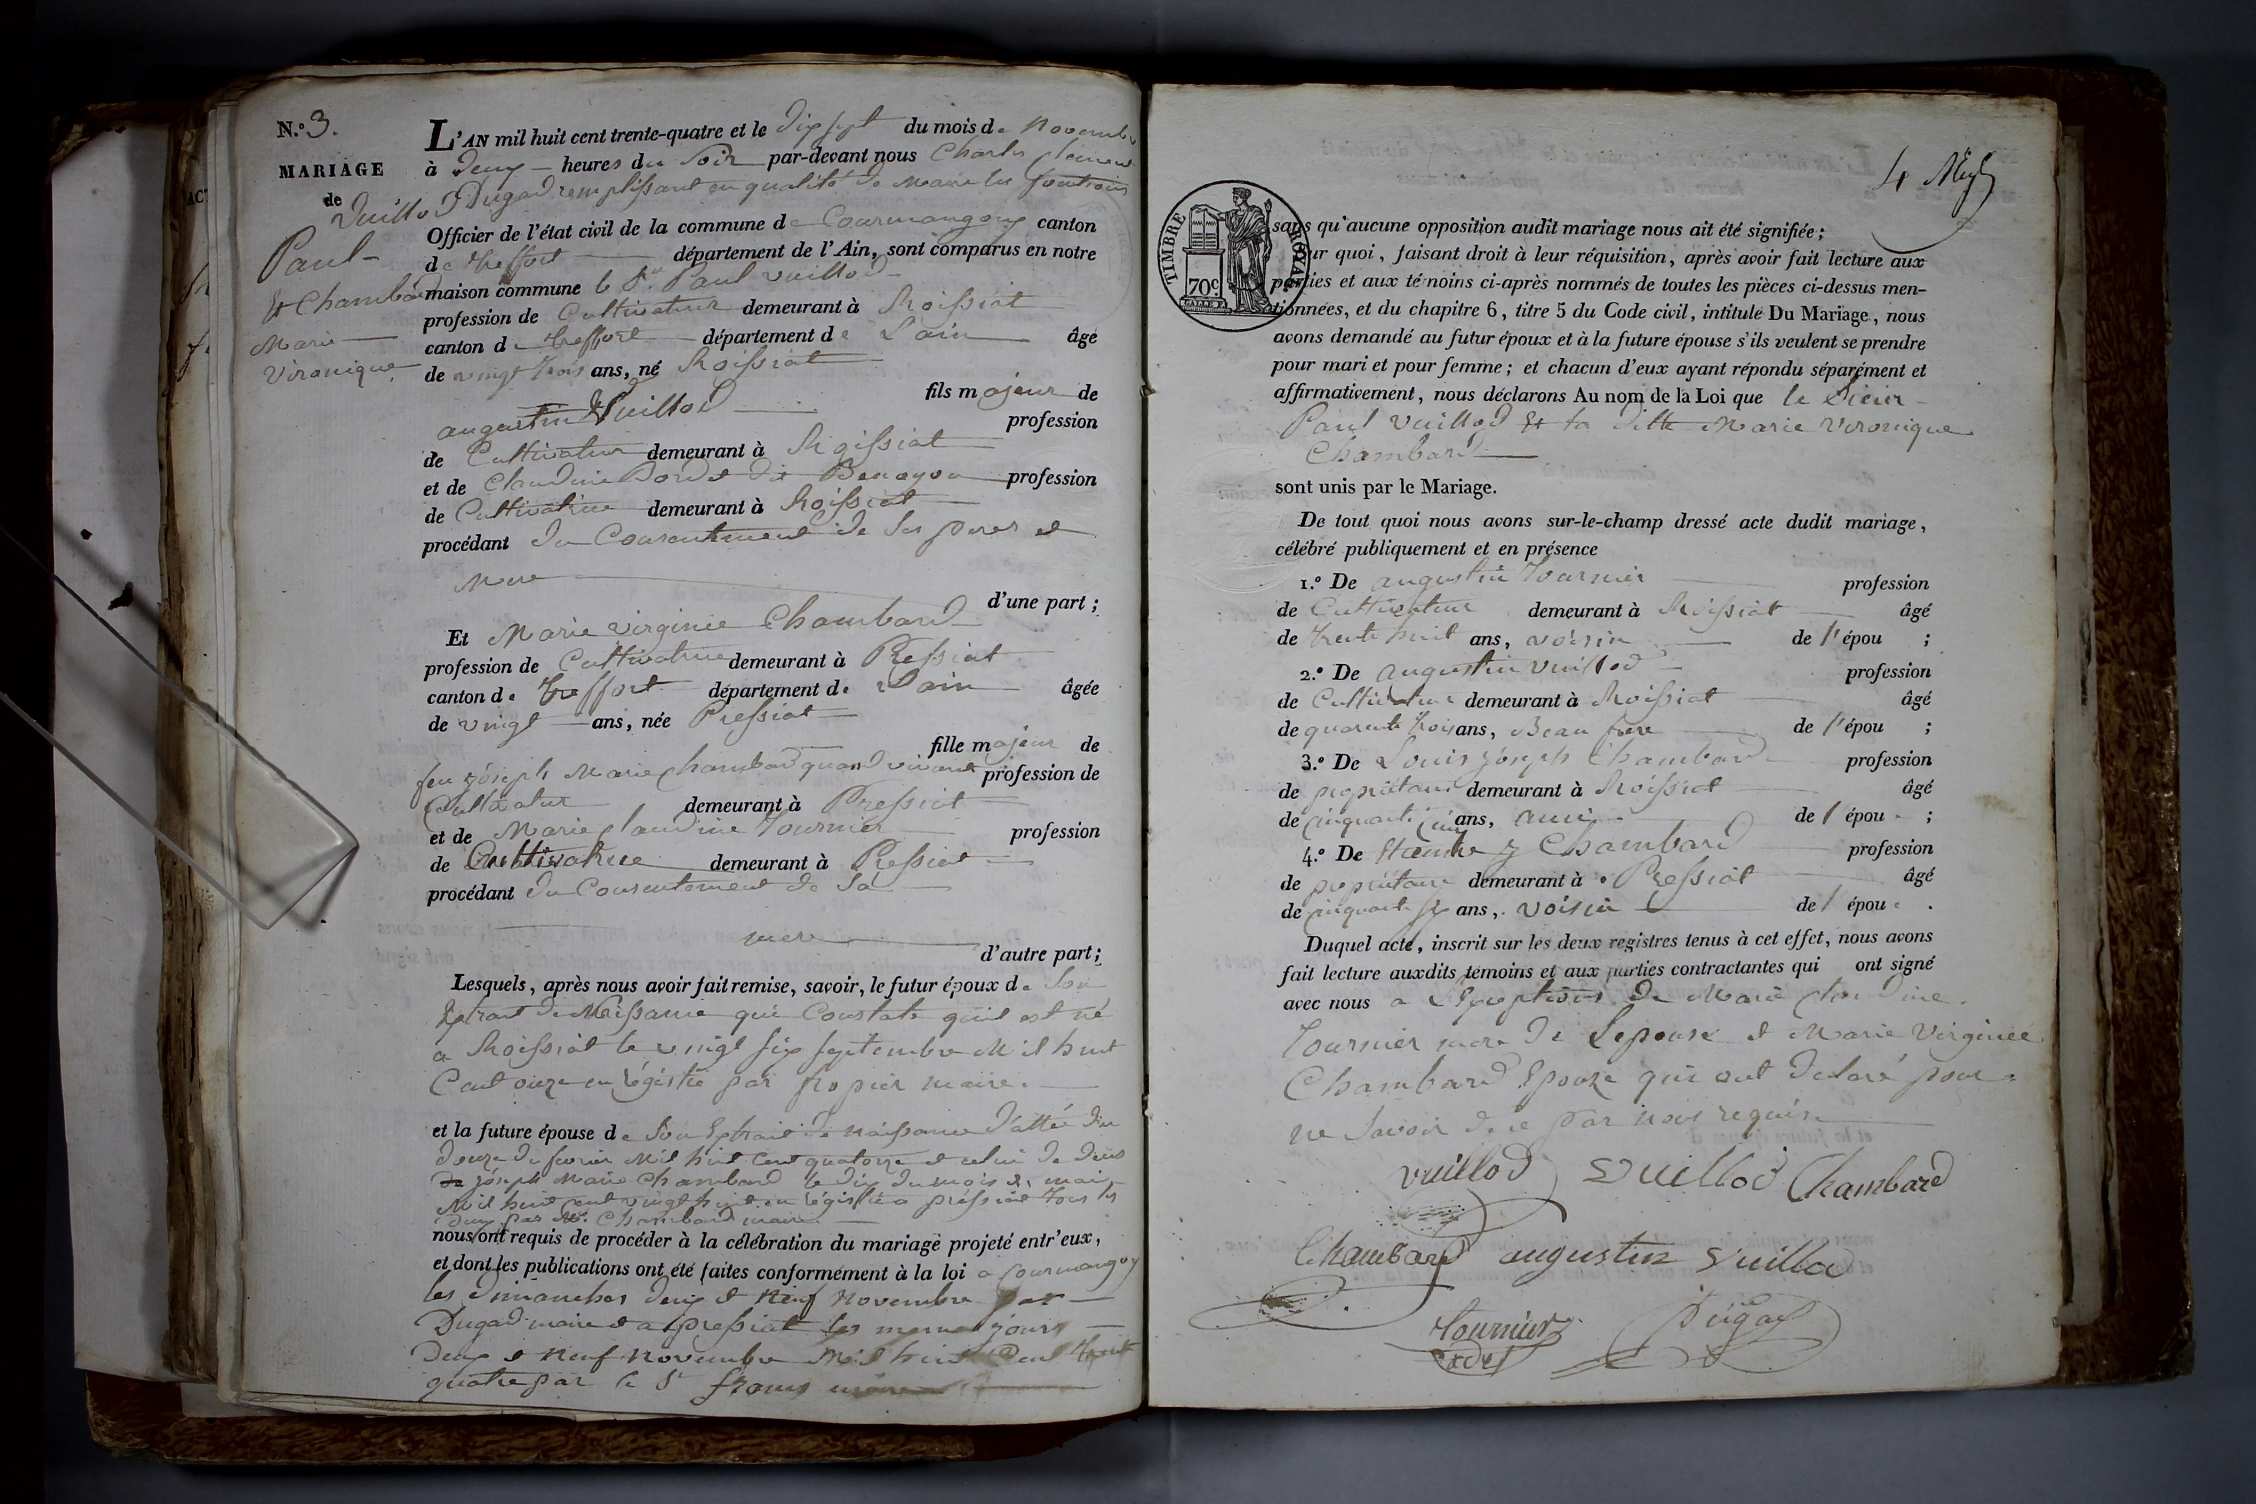 N.º 3.
MARIAGE
de
Vuillod
Paul
Et Chambard
Marie
Véronique
L'AN mil huit cent trente-quatre et le dix sept du mois de Novembre
à Deux heures du Soir par-devant nous Charles Clement
Dugad remplissant en qualité de Maire les fonctions
Officier de l'état civil de la commune de Courmangoux canton
de treffort département de l'Ain, sont comparus en notre
maison commune le Sr. Paul Vuillod
profession de Cultivateur demeurant à Roissiat
canton de treffort département de L'ain âgé
de vingt trois ans, né Roissiat
fils majeur de
augustin Vuillod profession
de Cultivateur demeurant à Roissiat
et de Claudine Dordet dit profession
de Cultivatrice demeurant à Roissiat
procédant du Consentement de Ses peres et
Mere
d'une part ;
Et Marie virginie Chambard
profession de Cultivatrice demeurant à Pressiat
canton de treffort département de L'ain âgée
de vingt ans, née Pressiat
fille majeur de
feu jóseph Marie Chambard quand vivant profession de
Cultivateur demeurant à Pressiat
et de Marie Claudine Tournier profession
de Cultivatrice demeurant à Pressiat
procédant du Consentement de Sá
mere
d'autre part ;
Lesquels, après nous avoir fait remise, savoir, le futur époux de Son
Extrait de Naissance qui Constate qu'il est né
a Roissiat le vingt six septembre Mil huit
Cent onze en régistré par propier maire.
et la future épouse de Son Extrait de naissance dattée du
douze de fevrier Mil huit Cent quatorze et celui de deces
de jóseph Marie Chambard le dix du mois de mai
Mil huit Cent vingt huit en régistré a pressiat tous les
deux par Mr. Chambard maire
nous ont requis de procéder à la célébration du mariage projeté entr'eux,
et dont les publications ont été faites conformément à la loi a Courmangoux
les dimanches deux et neuf Novembre par
Dugad maire et a pressiat les meme jours
Deux et Neuf Novembre Mil huit Cent trente
quatre par le Sr maire
sans qu'aucune opposition audit mariage nous ait été signifiée ;
TIMBRE ROYAL
70c
Pour quoi, faisant droit à leur réquisition, après avoir fait lecture aux
parties et aux témoins ci-après nommés de toutes les pièces ci-dessus men-
tionnées, et du chapitre 6, titre 5 du Code civil, intitulé Du Mariage, nous
avons demandé au futur époux et à la future épouse s'ils veulent se prendre
pour mari et pour femme ; et chacun d'eux ayant répondu séparément et
affirmativement, nous déclarons Au nom de la Loi que le Sieur
Paul Vuillod Et la ditte Marie Veronique
Chambard
sont unis par le Mariage.
De tout quoi nous avons sur-le-champ dressé acte dudit mariage,
célébré publiquement et en présence
1.º De augustin Tournier profession
de Cultivateur demeurant à Roissiat âgé
de trente huit ans, voisin de l'épou ;
2.º De augustin Vuillod profession
de Cultivateur demeurant à Roissiat âgé
de quarente trois ans, Beau frere de l'épou ;
3.º De Louis jóseph Chambard profession
de propriétaire demeurant à Roissiat âgé
de Cinquante cinq ans, ami de l'épou ;
4.º De Chambard profession
de propriétaire demeurant à Pressiat âgé
de cinquante six ans, voisin de l'épou .
Duquel acte, inscrit sur les deux registres tenus à cet effet, nous avons
fait lecture auxdits témoins et aux parties contractantes qui ont signé
avec nous a L'Exception de Marie Claudine
Tournier mere de Lepouse et Marie Virginee
Chambard Epouze qui ont declaré pour
ne Savoir de ce par nous requise
vuillod Vuillod Chambard
Chambard augustin vuillod
tournier Dugad